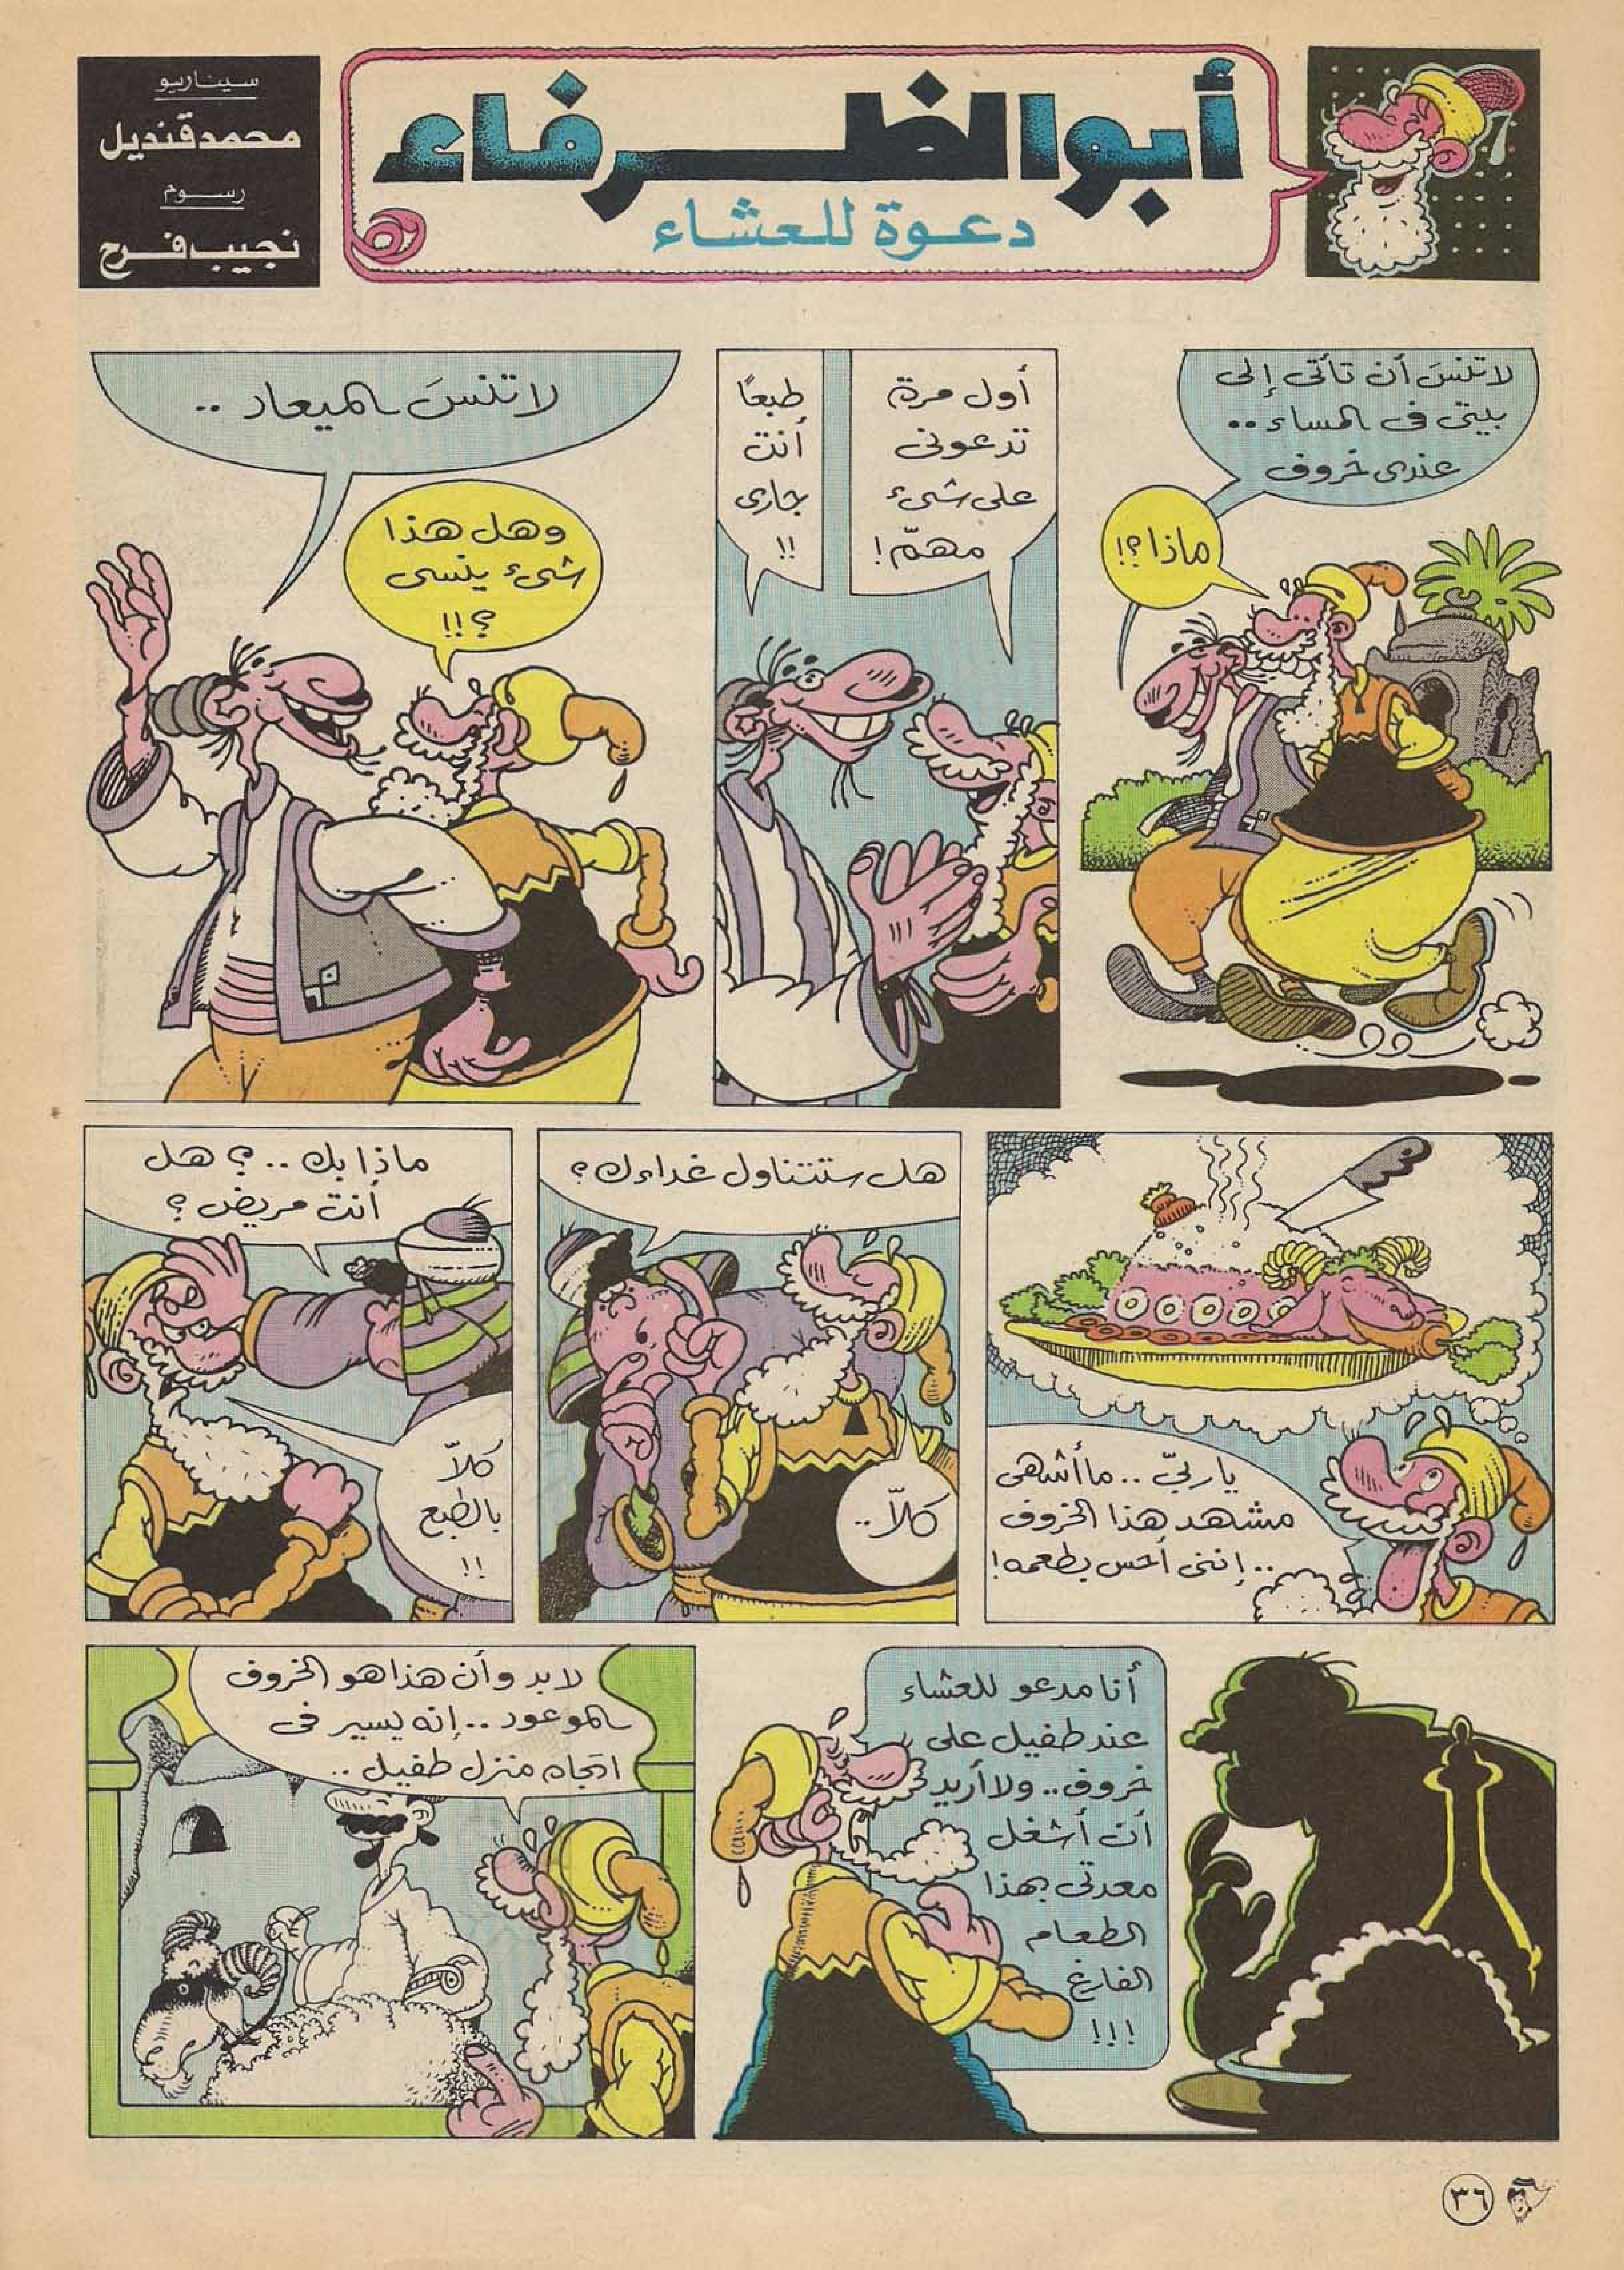 أبو الظرفاء
دعوة للعشاء
سيناريو
محمد قنديل
رسوم
نجيب فرح
لا تنسَ أن تأتى إلى
بيتى فى المساء ..
عندى خروف
ماذا ؟!
أول مرة
تدعونى
على شىء
مهمّ !
طبعًا
أنت
جارى
!!
لا تنسَ الميعاد ..
وهل هذا
شىء ينسى
؟ !!
يا ربّى .. ما أشهى
مشهد هذا الخروف
.. إننى أحس بطعمه !
هل ستتناول غداءك ؟
كلاّ ..
ماذا بك .. ؟ هل
أنت مريض ؟
كلاّ
بالطبع
!!
أنا مدعو للعشاء
عند طفيل على
خروف .. ولا أريد
أن أشغل
معدتى بهذا
الطعام
الفارغ
!!!
لا بد وأن هذا هو الخروف
الموعود .. إنه يسير فى
اتجاه منزل طفيل ..
٣٦